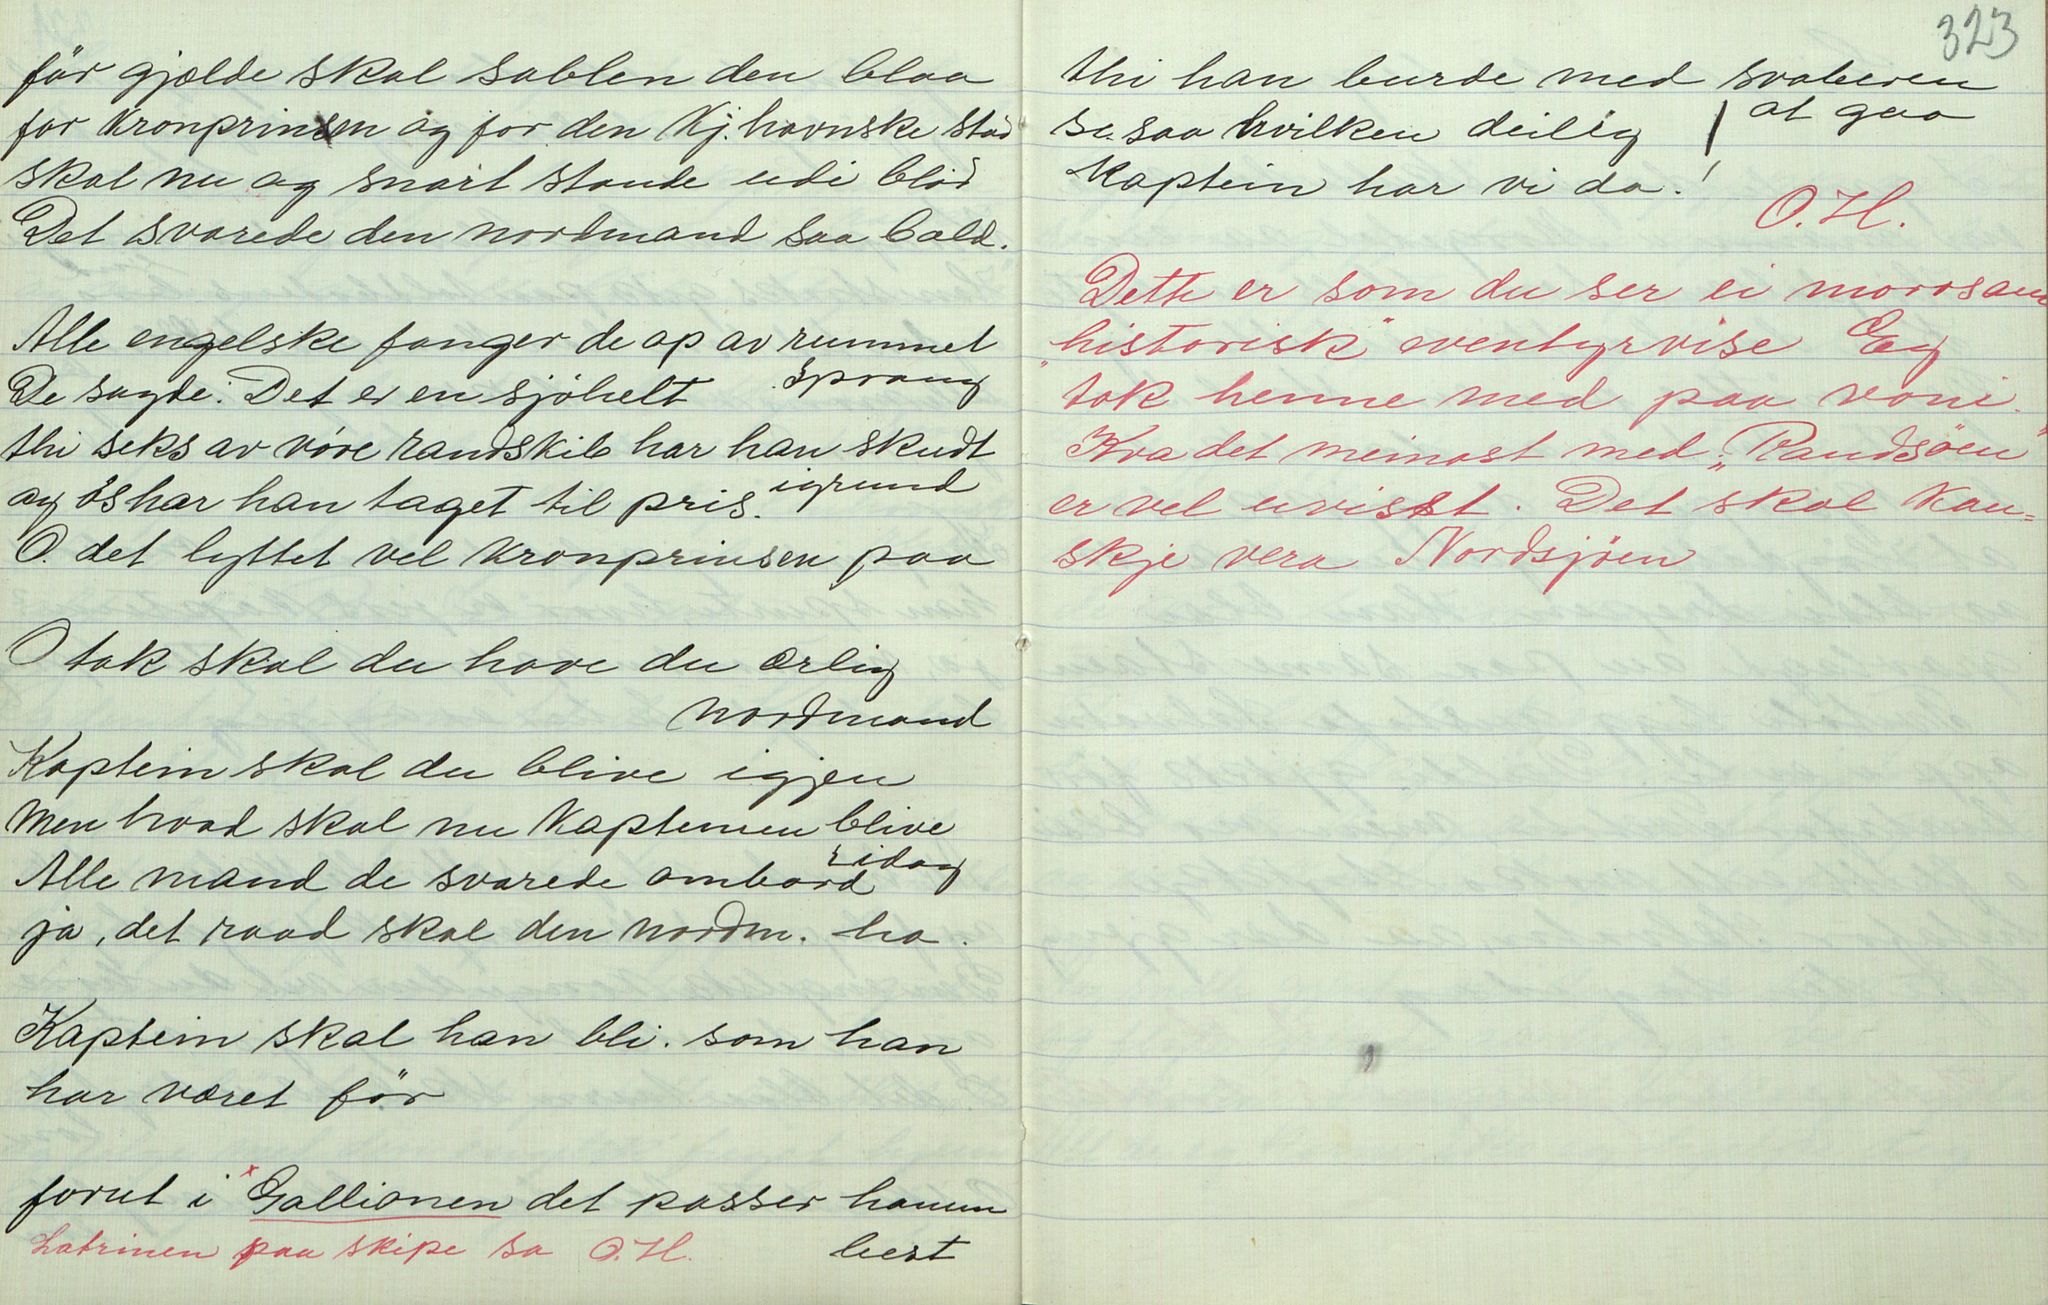 för gjælde skal sablen den blaa
for Kronprinsen og for den Kj.havnske stad
skal nu og snart stande udi blöd
Det svarede den nordmand saa bald.
Alle engelske fanger de op av rummet
sprang
De sagde: Det er en sjöhelt
thi seks av vóre randskib har han skudt
igrund
og ós har han taget til pris.
O. det lyttet vel Kronprinsen paa
O tak skal du have du ærlig
nordmand
Kaptein skal du blive igjen
Men hvad skal nu Kapteinen blive
idag
Alle mand de svarede ombord
ja, det raad skal den nordm. ha.
Kaptein skal han bli. som han
har været för
forut i x Gallionen det passer hanem
best
Latrinen paa skipe sa O.H.
323
thi han burde med svaberen
at gaa
se. saa hvilken deilig
Kaptein har vi da!
O.H.
Dette er som du ser ei morosam
"historisk" eventyrvise Eg
tok henne med paa voni.
Kva det meinast med „Randsöen"
er vel uvisst. Det skal kan=
skje vera Nordsjöen